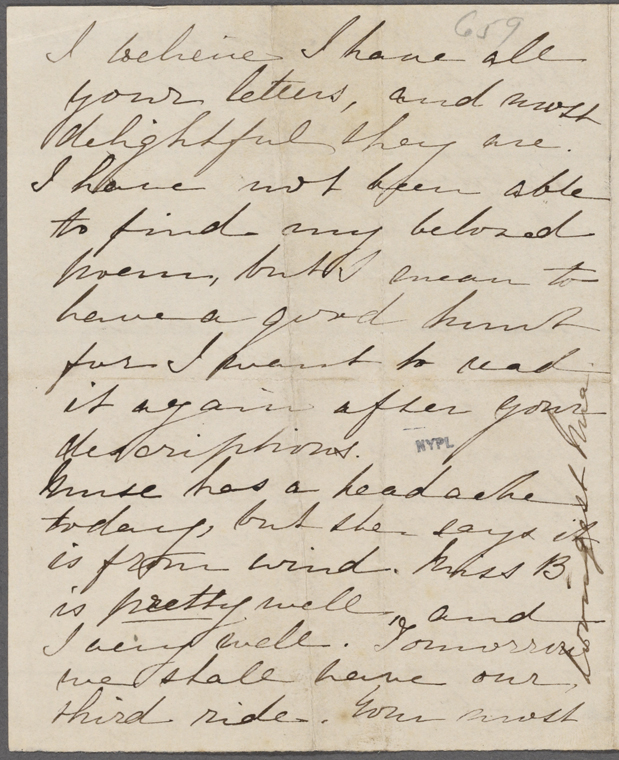 659
I believe I have all
your letters, and most
delightful they are.
I have not been able
to find my beloved
poem, but I mean to
have a good hunt
for I want to read
it again after your
descriptions.
NYPL
Nurse has a headache
today, but she says it
is from wind. Miss B
is pretty well, and
I very well. Tomorrow
we shall have our
third ride. Your most
lovingest Mia